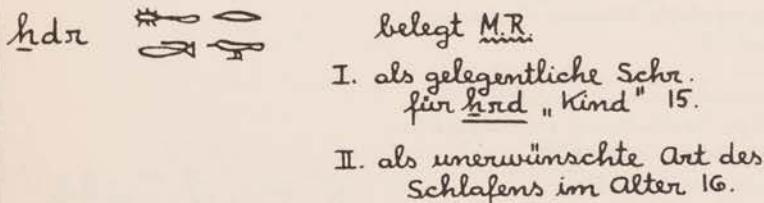 ẖdr belegt M.R.
I. als gelegentliche Schr.
für ẖrd „Kind" 15.
II. als unerwünschte Art des
Schlafens im Alter 16.